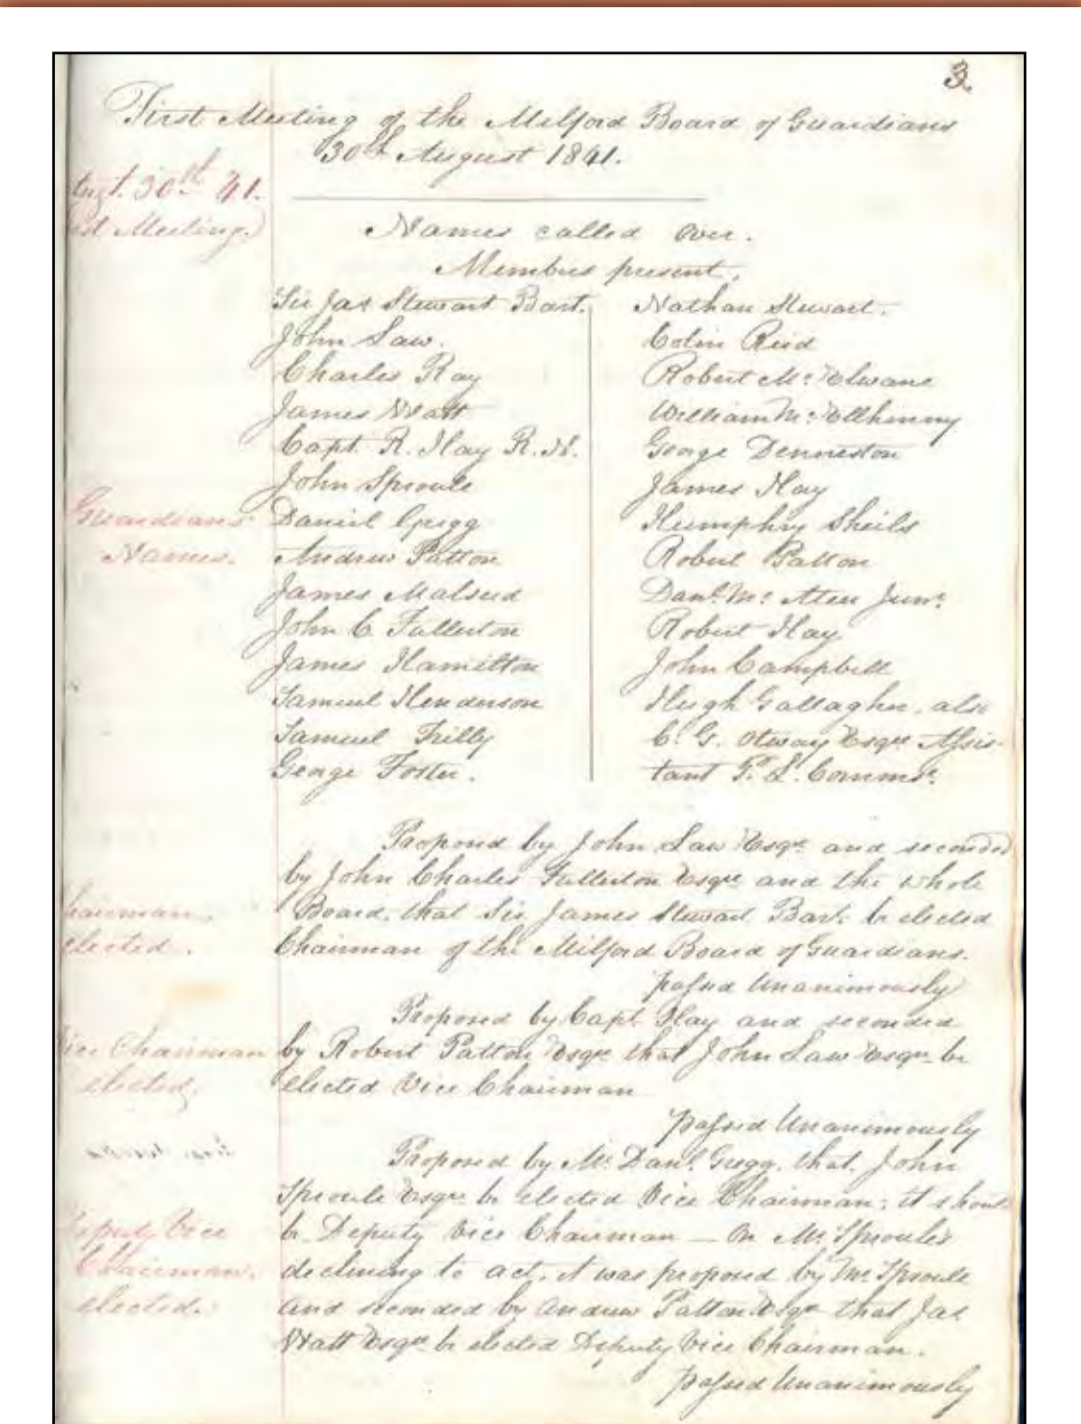 3
First Meeting of the Milford Board of Guardians
30th August 1841.
Augt. 30th 41.
1st Meeting.)
Names called over.
Members present.
Sir Jas Stewart Bart.
John Law.
Charles Ray
James Watt
Capt. R. Hay R.N.
John Sproule
Daniel Gregg
Andrew Patton
James
John C. Fullerton
James Hamilton
Samuel Henderson
Samuel
George Foster.
Nathan Stewart.
Colin Reid
Robert Mc. Elwane
William Mc. Ellhinny
George Denneston
James Hay
Humphry Sheils
Robert Patton
Danl. Mc. Ateer Junr.
Robert Hay
John Campbell
Hugh Gallagher, also
C. G. Otway Esqre Assis-
tant P. L. Commr.
Guardians
Names.
Proposed by John Law Esqre and seconded
by John Charles Fullerton Esqre and the whole
Board, that Sir James Stewart Bart. be elected
Chairman of the Milford Board of Guardians.
passed Unanimously
hairman
elected.
Proposed by Capt. Hay and seconded
by Robert Patton Esqre that John Law Esqre be
elected Vice Chairman
passed Unanimously
Vice Chairman
elected.
Proposed by Mr. Danl. Gregg, that, John
Sproule Esqre be elected Vice Chairman; it should
be Deputy Vice Chairman — On Mr. Sproules
declining to act, it was proposed by Mr Sproule
and seconded by Andrew Patton Esqre that Jas
Watt Esqre be elected Deputy Vice Chairman.
passed Unanimously
Deputy Vice
Chairman.
elected.